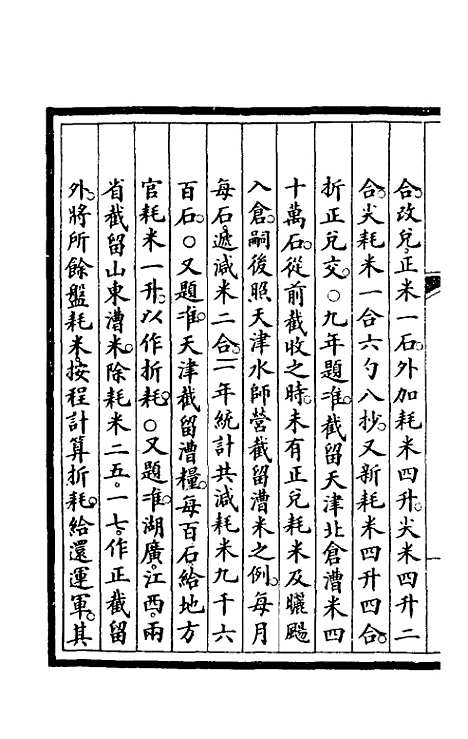 合。改兌正米一石。外加耗米四升。尖米四升二
合。尖耗米一合六勺八抄。又新耗米四升四合。
折正兌交。○九年題准。截留天津北倉漕米四
十萬石。從前截收之時。未有正兌耗米及曬颺
入倉。嗣後照天津水師營截留漕米之例。每月
每石遞減米二合。一年統計共減耗米九千六
百石。○又題准。天津截留漕糧。每百石給地方
官耗米一升。以作折耗。○又題准。湖廣。江西。兩
省截留山東漕米。除耗米二五。一七。作正截留
外。將所餘盤耗米。按程計算折耗。給還運軍。其